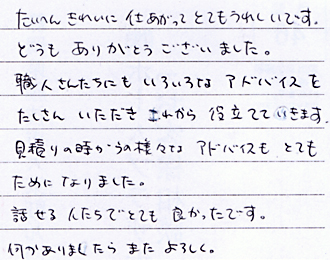 たいへんきれいに仕あがってとてもうれしいです。
どうもありがとうございました。
職人さんたちにもいろいろなアドバイスを
たくさんいただきこれから役立てていきます。
見積りの時からの様々なアドバイスもとても
ためになりました。
話せる人たちでとても良かったです。
何かありましたらまたよろしく。